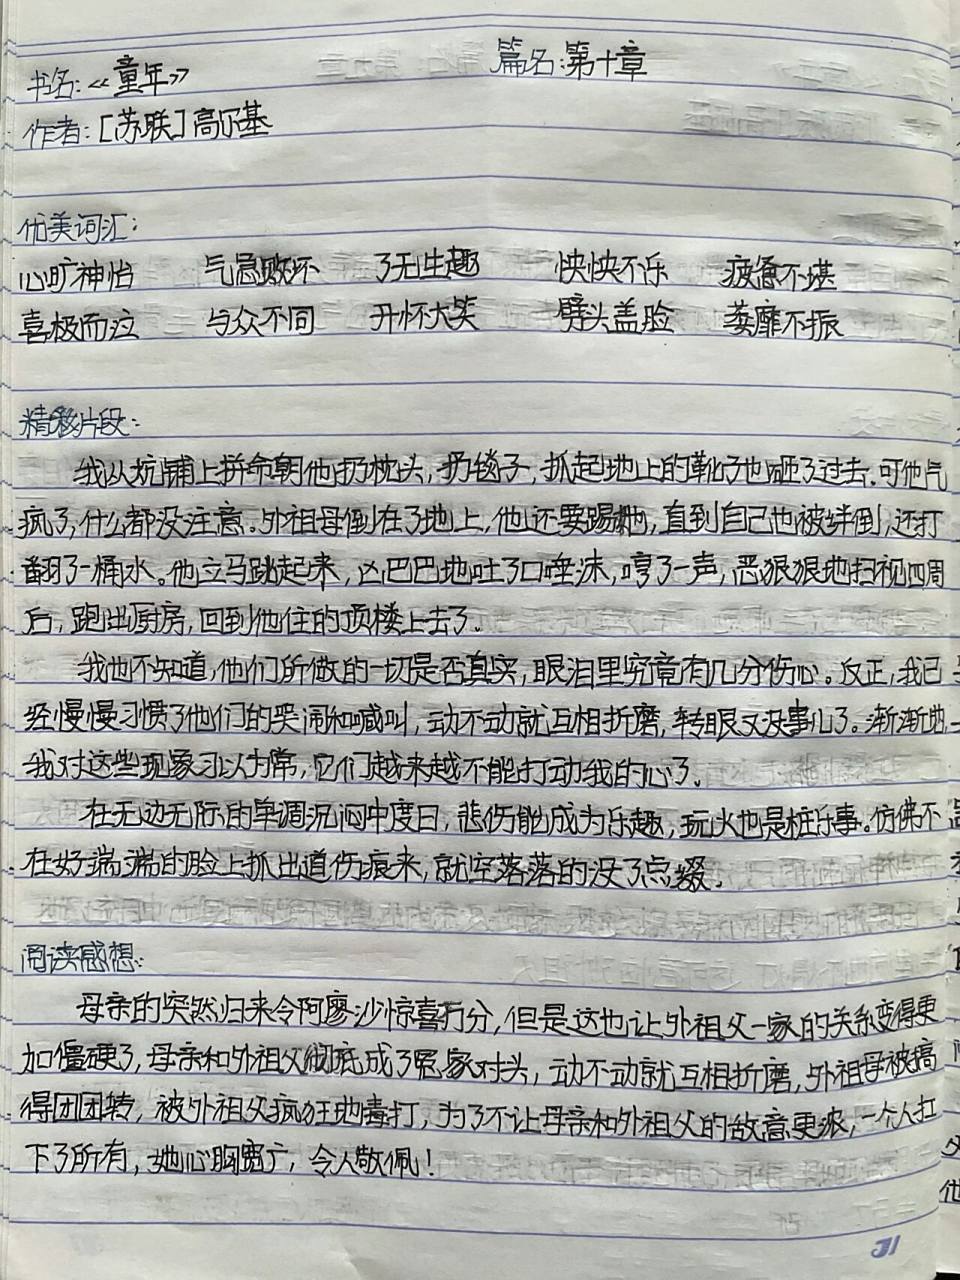 书名:《童年》 篇名:第十章
作者:[苏联]高尔基
优美词汇:
心旷神怡 气急败坏 了无生趣 怏怏不乐 疲惫不堪
喜极而泣 与众不同 开怀大笑 劈头盖脸 萎靡不振
精彩片段:
我从炕铺上拼命朝他扔枕头,扔毯子,抓起地上的靴子也砸了过去.可他气
疯了,什么都没注意。外祖母倒在了地上,他还要踢她,直到自己也被绊倒,还打
翻了一桶水。他立马跳起来,凶巴巴地吐了口唾沫,哼了一声,恶狠狠地扫视四周
后,跑出厨房,回到他住的顶楼上去了.
我也不知道,他们所做的一切是否真实,眼泪里究竟有几分伤心。反正,我已
经慢慢习惯了他们的哭闹和喊叫,动不动就互相折磨,转眼又没事儿了。渐渐地
我对这些现象习以为常,它们越来越不能打动我的心了.
在无边无际的单调沉闷中度日,悲伤能成为乐趣,玩火也是桩乐事。仿佛不
在好端端的脸上抓出道伤痕来,就空落落的没了点缀.
阅读感想:
母亲的突然归来令阿廖沙惊喜万分,但是这也让外祖父一家的关系变得更
加僵硬了,母亲和外祖父彻底成了冤家对头,动不动就互相折磨,外祖母被搞
得团团转,被外祖父疯狂地毒打,为了不让母亲和外祖父的敌意更浓,一个人扛
下了所有,她心胸宽广,令人敬佩!
31